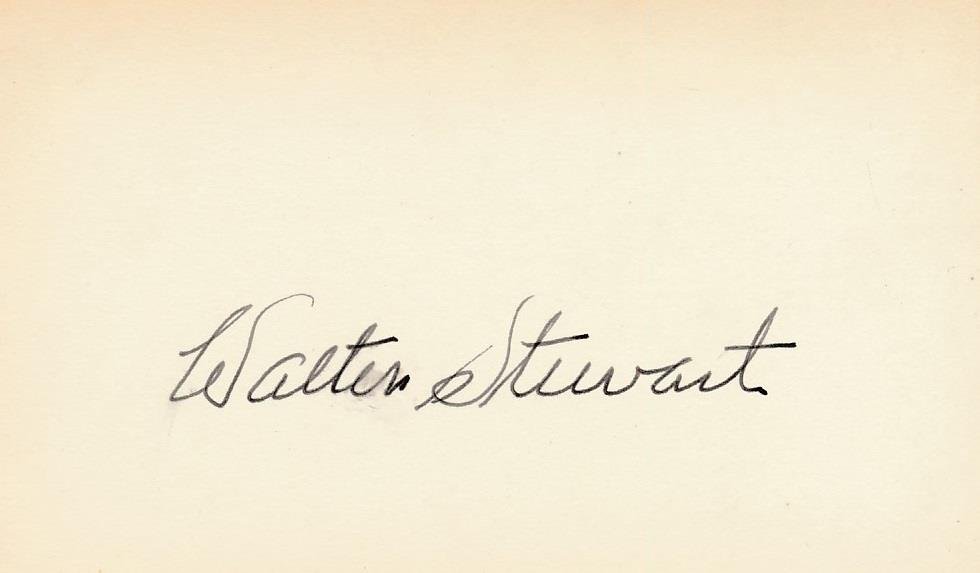 Walter Stewart